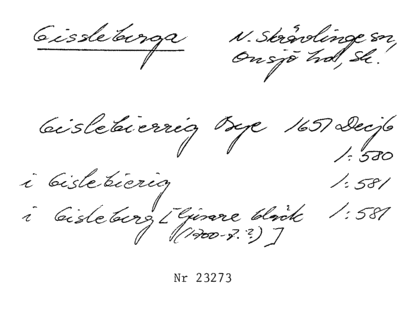 Gissleberga N. Skrävlinge sn,
Onsjö hd, Sk.
Gislebierrig Bye 1651 Decjb
1:580
i Gislebierig 1:581
i Gisleberg [ljusare bläck 1:581
(1700-t.?) ]
Nr 23273